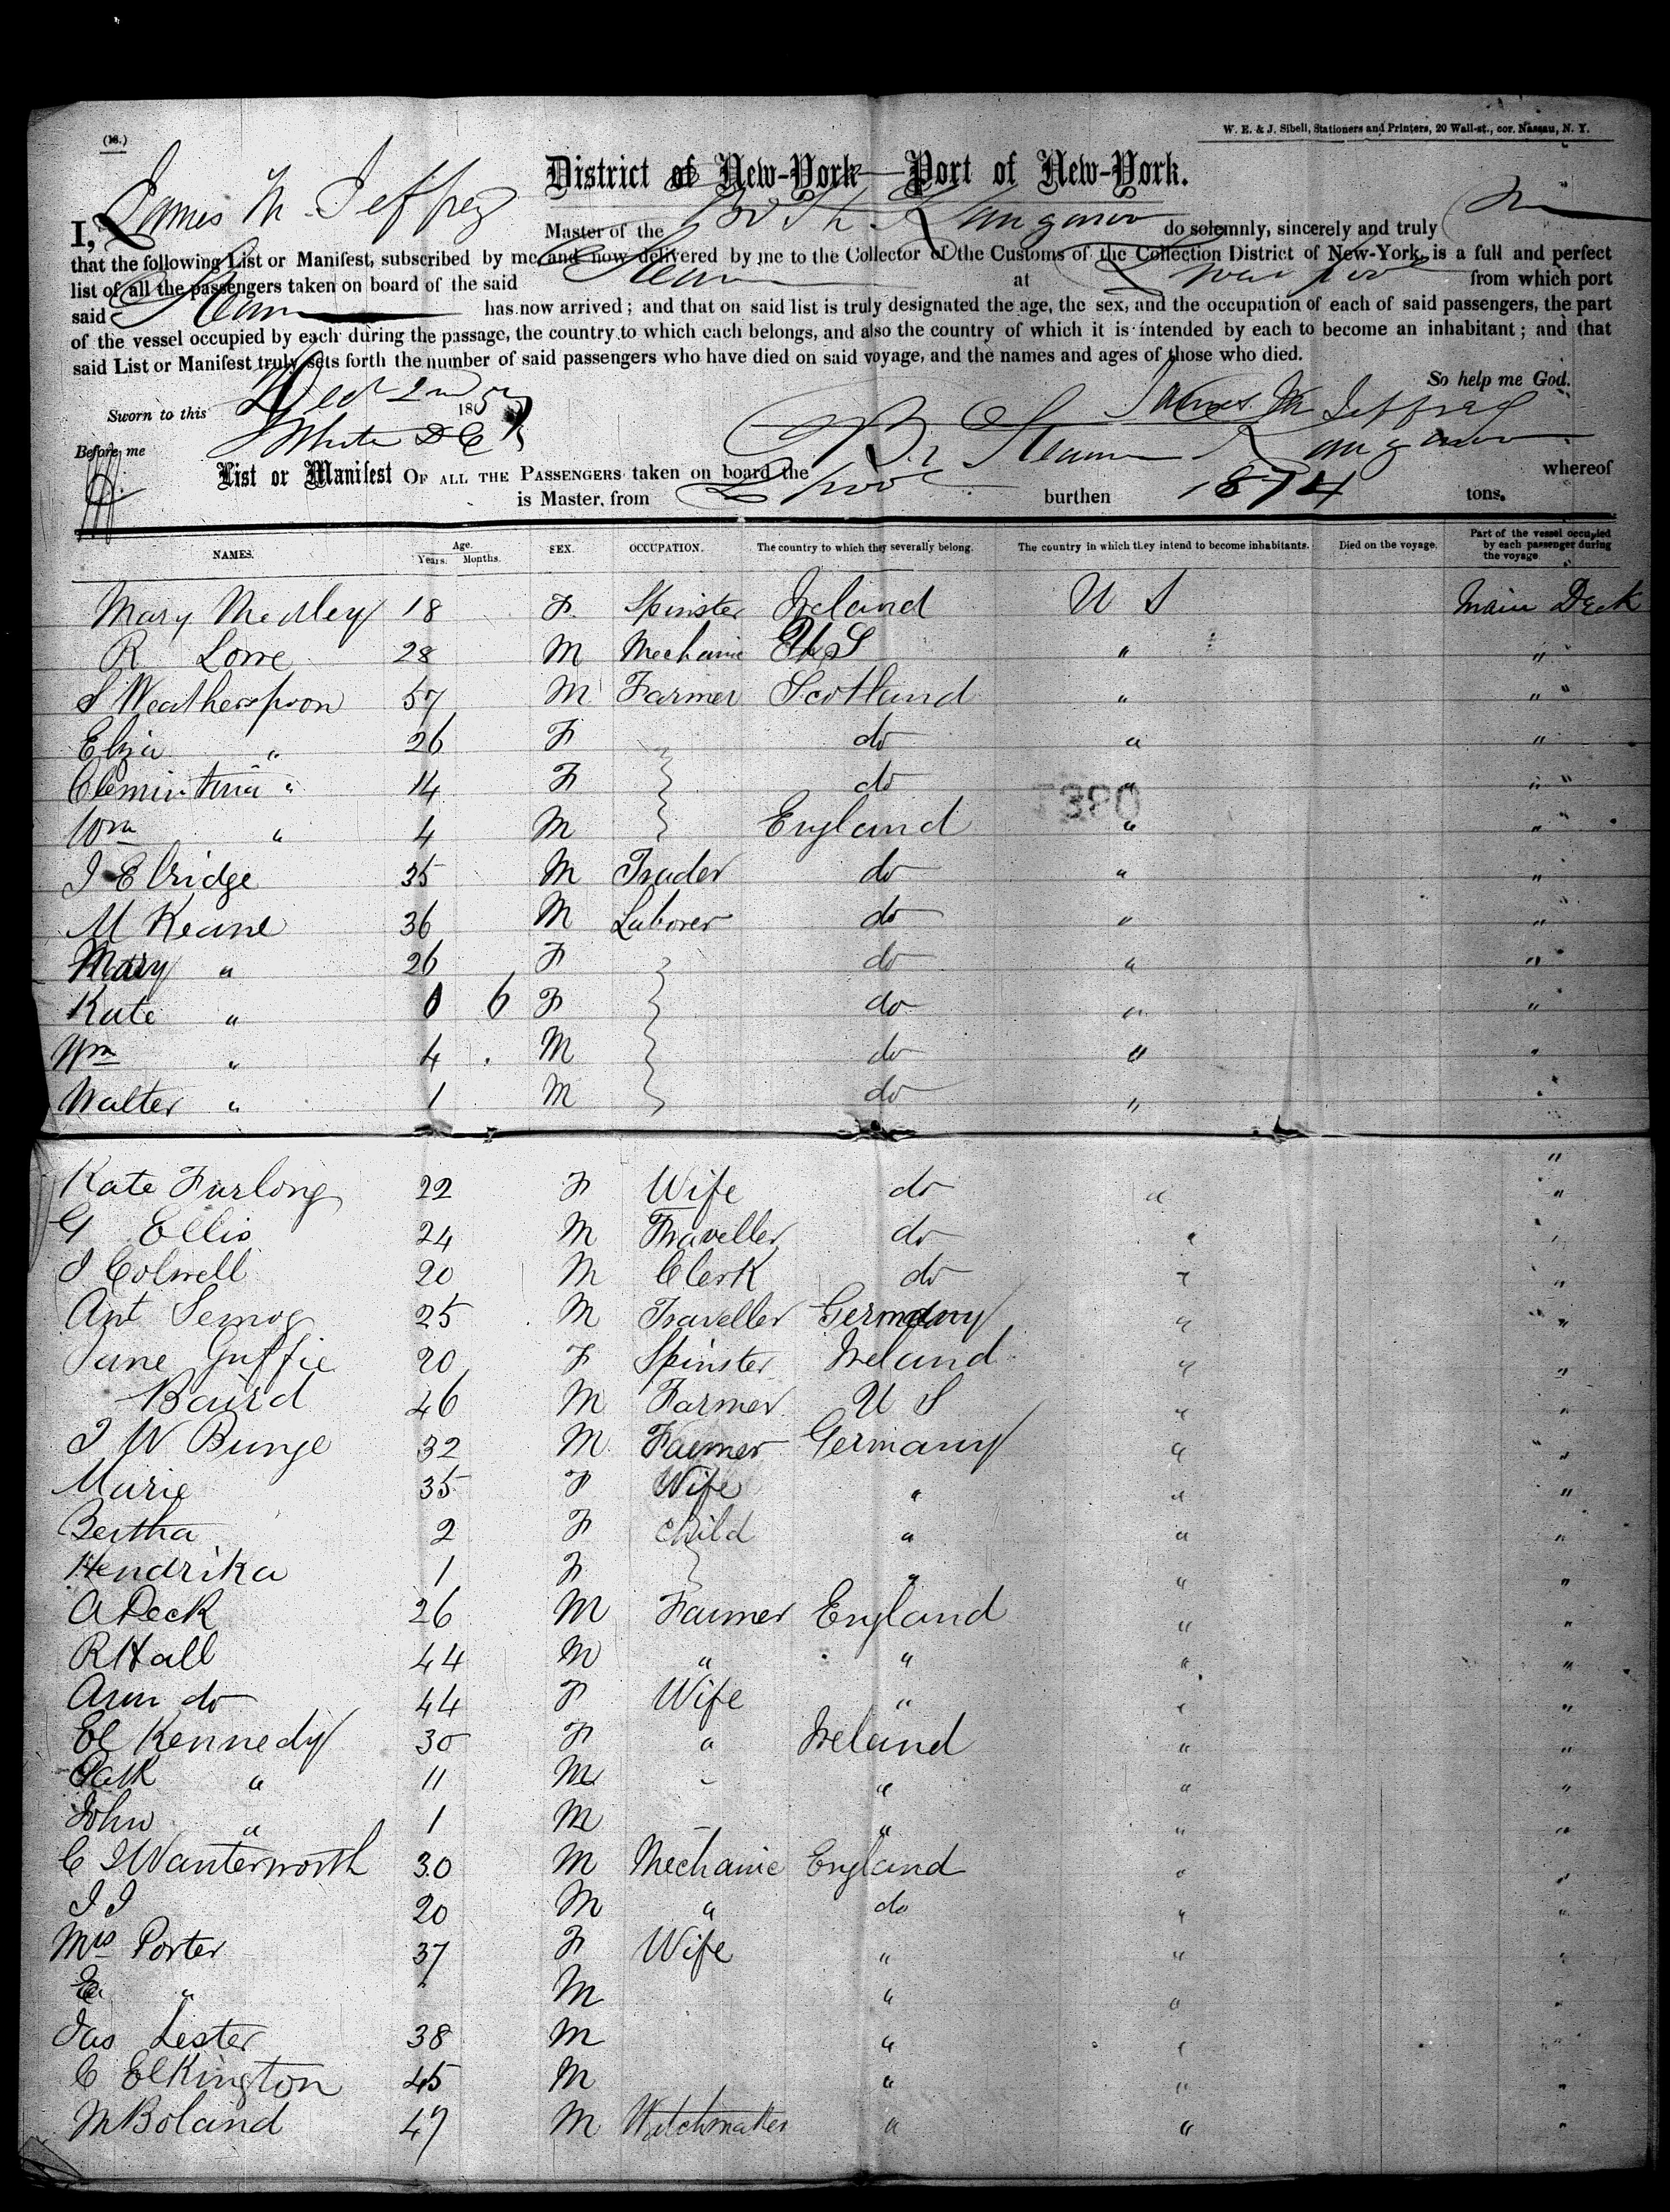 (18.)
W. E. & J. Sibell, Stationers and Printers, 20 Wall-st., cor. Nassau, N. Y.
District of New-York—Port of New-York.
I, James M. Jeffrey Master of the Kangaroo do solemnly, sincerely and truly
that the following List or Manifest, subscribed by me and now delivered by me to the Collector of the Customs of the Collection District of New-York, is a full and perfect
list of all the passengers taken on board of the said Steamer at Liverpool from which port
said Steamer has now arrived; and that on said list is truly designated the age, the sex, and the occupation of each of said passengers, the part
of the vessel occupied by each during the passage, the country to which each belongs, and also the country of which it is intended by each to become an inhabitant; and that
said List or Manifest truly sets forth the number of said passengers who have died on said voyage, and the names and ages of those who died.
So help me God.
Sworn to this 2nd 185 James M Jeffrey
Before me White
List or Manifest OF ALL THE PASSENGERS taken on board the Br Steamer Kangaroo whereof
is Master, from L'pool burthen 1874 tons.
NAMES. Age. Years. Months. SEX. OCCUPATION. The country to which they severally belong. The country in which they intend to become inhabitants. Died on the voyage. Part of the vessel occupied by each passenger during the voyage
Mary Medley 18 F. Spinster Ireland U S Main Deck
R Lowe 28 M Mechanic U S " "
S Weatherspoon 57 M Farmer Scotland " "
Eliza " 26 F do " "
Clemintina " 14 F do " "
1380
Wm " 4 M England " "
J Elridge 35 M Trader do " "
M Keane 36 M Laborer do " "
Mary " 26 F do " "
Kate " 0 6 F do " "
Wm " 4 M do " "
Walter " 1 M do " "
"
Kate Furlong 22 F Wife do " "
G Ellis 24 M Traveller do " "
J Colwell 20 M Clerk do " "
Ant Semog 25 M Traveller Germany " "
Jane Guffie 20 F Spinster Ireland " "
Baird 46 M Farmer U S " "
J W Bunge 32 M Farmer Germany " "
Marie 35 F Wife " " "
Bertha 2 F Child " " "
Hendrika 1 F " " "
A Peck 26 M Farmer England " "
R Hall 44 M " " " "
Ann do 44 F Wife " " "
El Kennedy 30 F " Ireland " "
Patk " 11 M " " "
John " 1 M " " "
C J Wanterworth 30 M Mechanic England " "
J J 20 M " do " "
Mrs Porter 37 F Wife " " "
" M " " "
Jas Lester 38 M " " "
C Elkington 45 M " " "
M Boland 47 M Watchmaker " " "